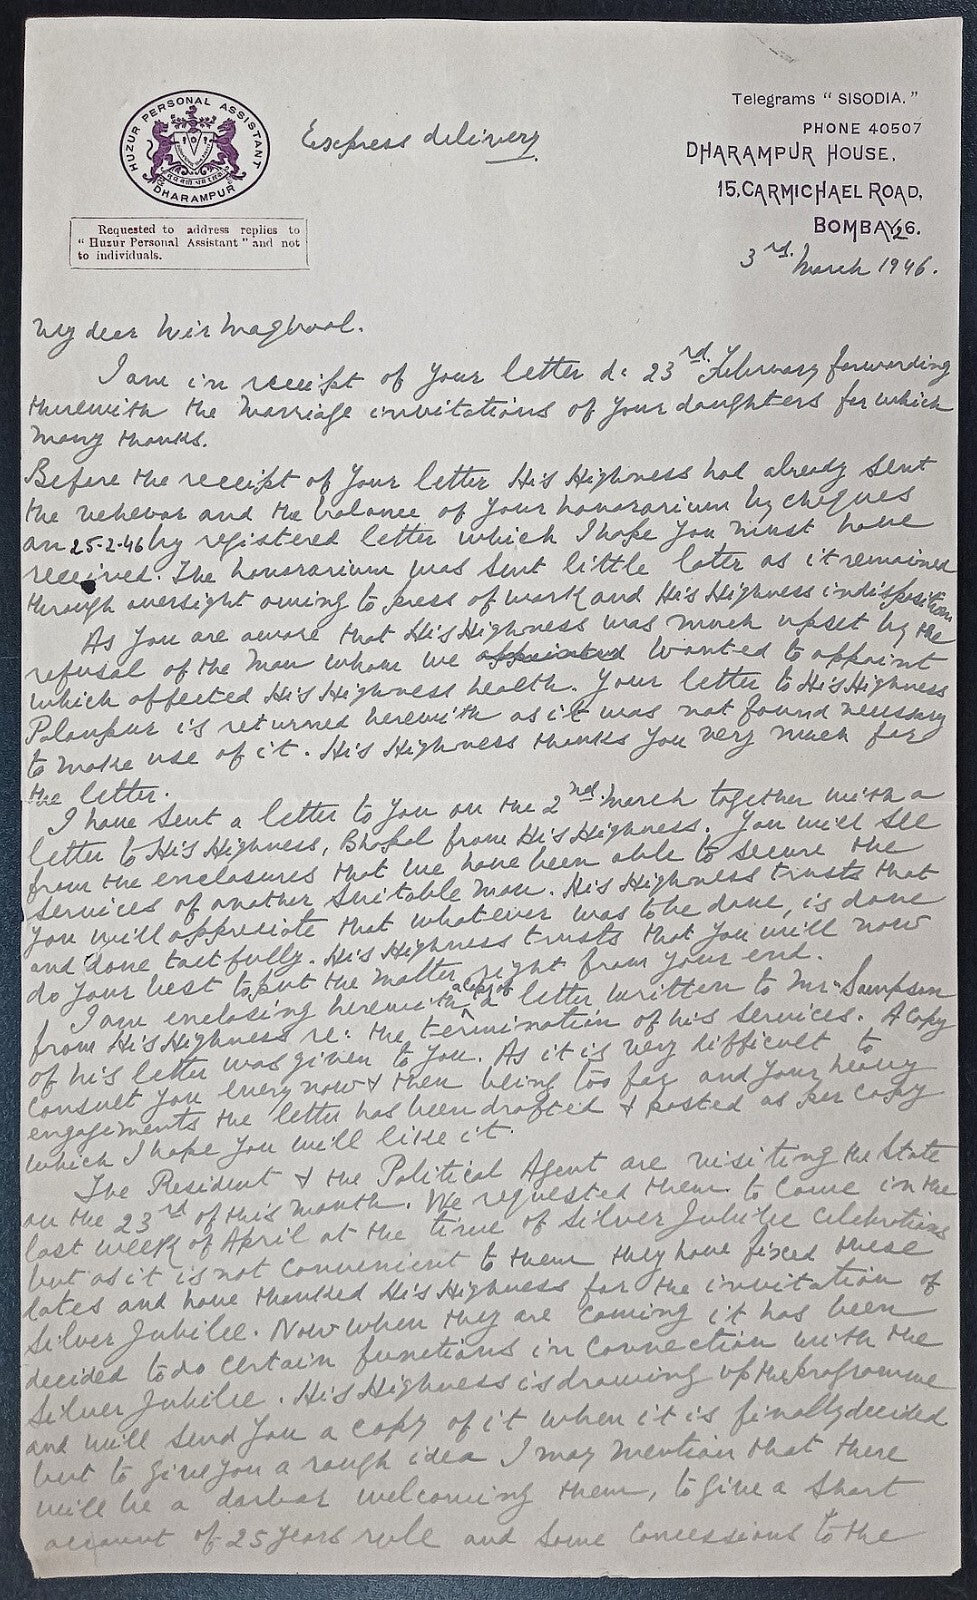 HUZUR PERSONAL ASSISTANT
DHARAMPUR
Requested to address replies to
"Huzur Personal Assistant" and not
to individuals.
Express delivery
Telegrams "SISODIA."
PHONE 40507
DHARAMPUR HOUSE,
15, CARMICHAEL ROAD,
BOMBAY, 26.
3rd. March 1946.
My dear Mir Maqbool.
I am in receipt of your letter d: 23rd. February forwarding
therewith the marriage invitations of your daughters for which
many thanks.
Before the receipt of your letter His Highness had already sent
the vehevar and the balance of your honorarium by cheques
on 25-2-46 by registered letter which I hope you must have
received. The honorarium was sent little later as it remained
through oversight owing to press of work and His Highness indisposition
As you are aware that His Highness was much upset by the
refusal of the man whom we appointed wanted to appoint
which affected His Highness health. Your letter to His Highness
Palanpur is returned herewith as it was not found necessary
to make use of it. His Highness thanks you very much for
the letter.
I have sent a letter to you on the 2nd. March together with a
letter to His Highness, Bhopal from His Highness. You will see
from the enclosures that we have been able to secure the
services of another suitable man. His Highness trusts that
you will appreciate that whatever was to be done, is done
and done tactfully. His Highness trusts that you will now
do your best to put the matter right from your end.
I am enclosing herewith a copy of a letter written to Mr. Sampson
from His Highness re: the termination of his services. A copy
of his letter was given to you. As it is very difficult to
consult you every now & then being too far and your heavy
engagements the letter has been drafted & posted as per copy
which I hope you will like it.
The Resident & the Political Agent are visiting the State
on the 23rd of this month. We requested them to come in the
last week of April at the time of Silver Jubilee celebrations
but as it is not convenient to them they have fixed these
dates and have thanked His Highness for the invitation of
Silver Jubilee. Now when they are coming it has been
decided to do certain functions in connection with the
Silver Jubilee. His Highness is drawing up the programme
and will send you a copy of it when it is finally decided
but to give you a rough idea I may mention that there
will be a darbar welcoming them, to give a short
account of 25 years rule and some concessions to the